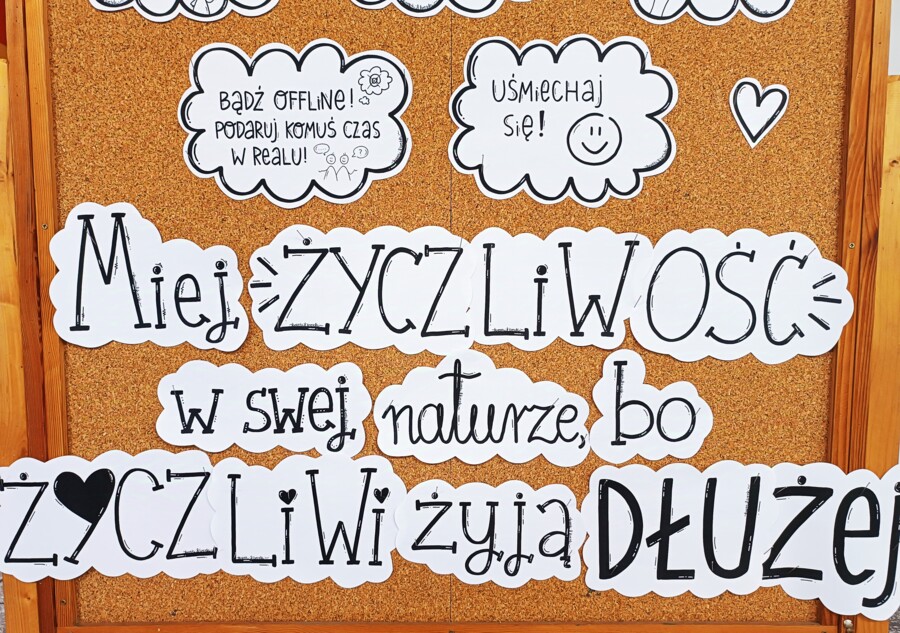 BĄDŹ OFFLiNE!
PODARUJ KOMUŚ CZAS
W REALU!
UŚMiECHAJ
SiĘ!
Miej ŻYCZLiWOŚĆ
w swej naturze, bo
ŻYCZLiWi żyją DŁUŻEj